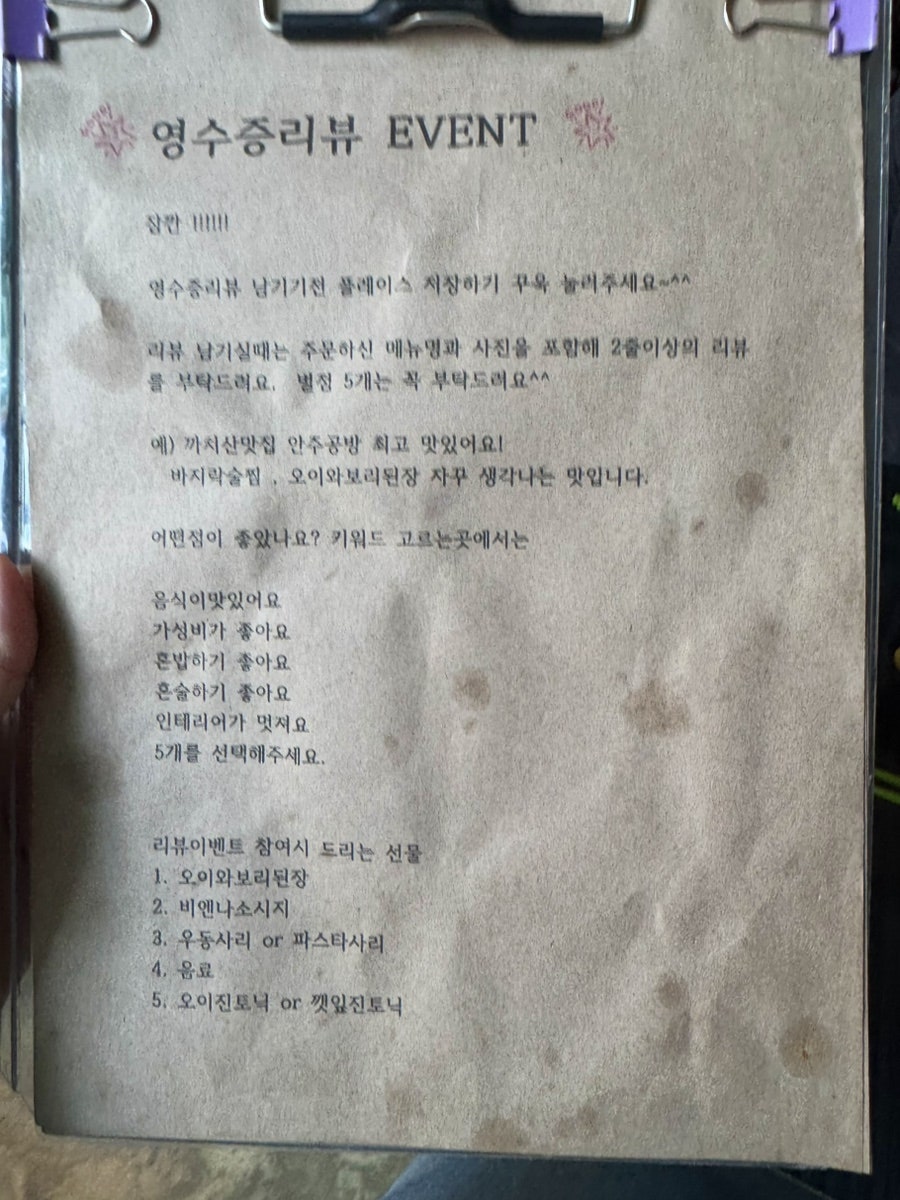 영수증리뷰 EVENT
잠깐 !!!!!!
영수증리뷰 남기기전 플레이스 저장하기 꾸욱 눌러주세요~^^
리뷰 남기실때는 주문하신 메뉴명과 사진을 포함해 2줄이상의 리뷰
를 부탁드려요. 별점 5개는 꼭 부탁드려요^^
예) 까치산맛집 안주공방 최고 맛있어요!
바지락술찜 , 오이와보리된장 자꾸 생각나는 맛입니다.
어떤점이 좋았나요? 키워드 고르는곳에서는
음식이맛있어요
가성비가 좋아요
혼밥하기 좋아요
혼술하기 좋아요
인테리어가 멋져요
5개를 선택해주세요.
리뷰이벤트 참여시 드리는 선물
1. 오이와보리된장
2. 비엔나소시지
3. 우동사리 or 파스타사리
4. 음료
5. 오이진토닉 or 깻잎진토닉